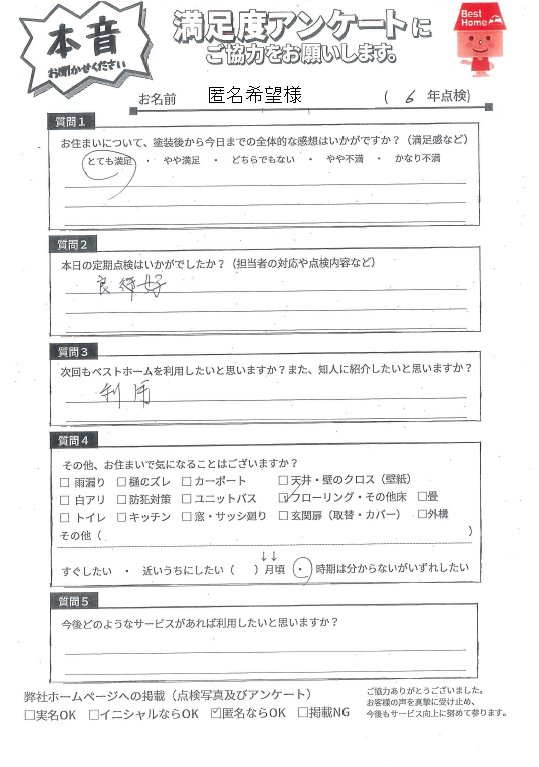 本音
お聞かせください
満足度アンケートに
ご協力をお願いします。
Best
Home
お名前 匿名希望様 ( 6 年点検)
質問1
お住まいについて、塗装後から今日までの全体的な感想はいかがですか？（満足感など）
とても満足 ・ やや満足 ・ どちらでもない ・ やや不満 ・ かなり不満
質問2
本日の定期点検はいかがでしたか？（担当者の対応や点検内容など）
質問3
次回もベストホームを利用したいと思いますか？また、知人に紹介したいと思いますか？
利用
質問4
その他、お住まいで気になることはございますか？
□ 雨漏り □ 樋のズレ □ カーポート □ 天井・壁のクロス（壁紙）
□ 白アリ □ 防犯対策 □ ユニットバス ☑ フローリング・その他床 □畳
□ トイレ □ キッチン □ 窓・サッシ廻り □ 玄関扉（取替・カバー） □外構
その他（ ）
↓↓
すぐしたい ・ 近いうちにしたい（ ）月頃 ・ 時期は分からないがいずれしたい
質問5
今後どのようなサービスがあれば利用したいと思いますか？
弊社ホームページへの掲載（点検写真及びアンケート）
□実名OK □イニシャルならOK ☑匿名ならOK □掲載NG
ご協力ありがとうございました。
お客様の声を真摯に受け止め、
今後もサービス向上に努めて参ります。